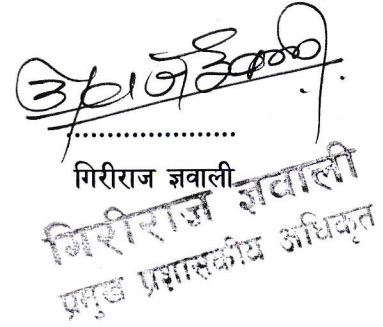 ....................
गिरीराज ज्ञवाली
गिरीराज ज्ञवाली
प्रमुख प्रशासकीय अधिकृत